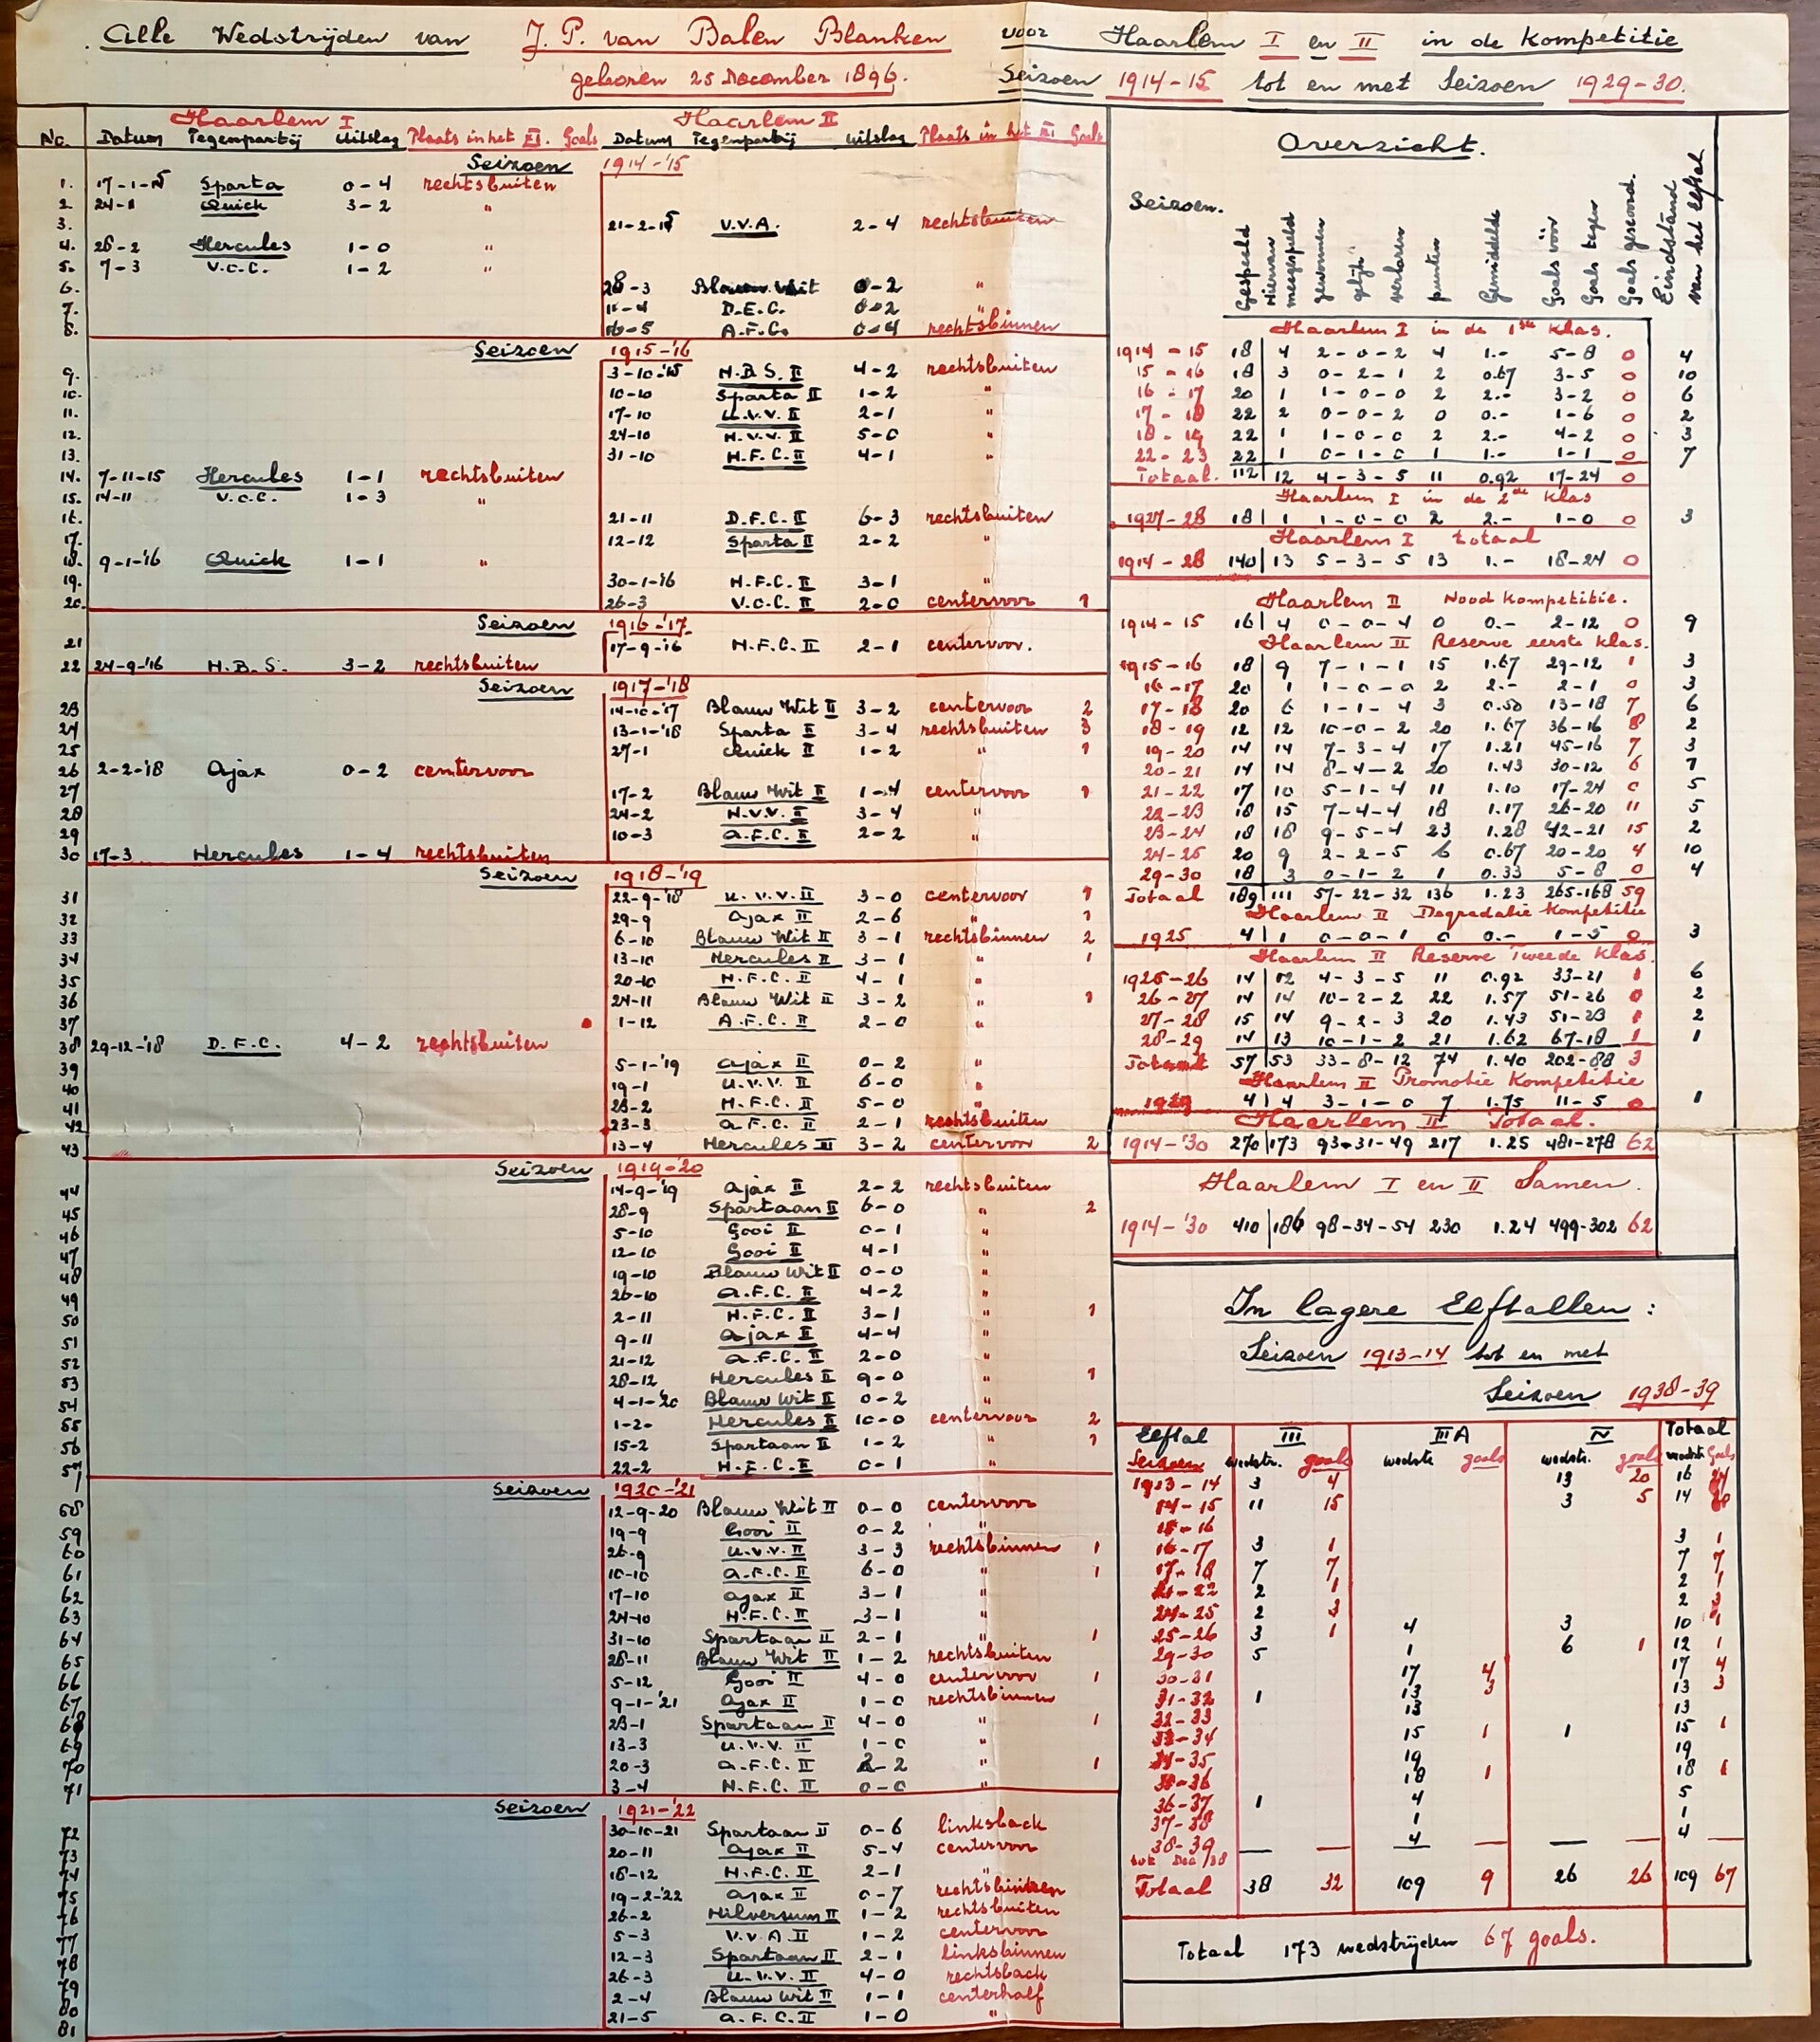 Alle Wedstrijden van J. P. van Balen Blanken voor Haarlem I en II in de Kompetitie
geboren 25 December 1896. Seizoen 1914-15 tot en met Seizoen 1929-30.
Haarlem I Haarlem II
No. Datum Tegenpartij Uitslag Plaats in het XI. Goals Datum Tegenpartij Uitslag Plaats in het XI Goals
Seizoen 1914-'15
1. 17-1-15 Sparta 0-4 rechtsbuiten
2 24-1 Quick 3-2 "
3. 21-2-15 V.V.A. 2-4 rechtsbuiten
4. 28-2 Hercules 1-0 "
5. 7-3 V.O.C. 1-2 "
6. 28-3 Blauw Wit 0-2 "
7. 11-4 D.E.C. 0-2 "
8. 16-5 A.F.C. 0-4 rechtsbinnen
Seizoen 1915-'16
9. 3-10-'15 H.B.S. II 4-2 rechtsbuiten
10. 10-10 Sparta II 1-2 "
11. 17-10 U.V.V. II 2-1 "
12. 24-10 H.V.V. II 5-0 "
13. 31-10 H.F.C. II 4-1 "
14. 7-11-15 Hercules 1-1 rechtsbuiten
15. 14-11 V.O.C. 1-3 "
16. 21-11 D.F.C. II 6-3 rechtsbuiten
17. 12-12 Sparta II 2-2 "
18. 9-1-'16 Quick 1-1 "
19. 30-1-16 H.F.C. II 3-1 "
20. 26-3 V.O.C. II 2-0 centervoor 1
Seizoen 1916-'17
21 17-9-16 H.F.C. II 2-1 centervoor.
22 24-9-'16 H.B.S. 3-2 rechtsbuiten
Seizoen 1917-'18
23 14-10-'17 Blauw Wit II 3-2 centervoor 2
24 13-1-'18 Sparta II 3-4 rechtsbuiten 3
25 27-1 Quick II 1-2 " 1
26 2-2-'18 Ajax 0-2 centervoor
27 17-2 Blauw Wit II 1-4 centervoor 1
28 24-2 H.V.V. II 3-4 "
29 10-3 A.F.C. II 2-2 "
30 17-3 Hercules 1-4 rechtsbuiten
Seizoen 1918-'19
31 22-9-'18 U.V.V. II 3-0 centervoor 1
32 29-9 Ajax II 2-6 " 1
33 6-10 Blauw Wit II 3-1 rechtsbinnen 2
34 13-10 Hercules II 3-1 " 1
35 20-10 H.F.C. II 4-1 "
36 24-11 Blauw Wit II 3-2 " 1
37 1-12 A.F.C. II 2-0 "
38 29-12-'18 D.F.C. 4-2 rechtsbuiten
39 5-1-'19 Ajax II 0-2 "
40 19-1 U.V.V. II 6-0 "
41 23-2 H.F.C. II 5-0 "
42 23-3 A.F.C. II 2-1 rechtsbuiten
43 13-4 Hercules II 3-2 centervoor 2
Seizoen 1919-'20
44 14-9-'19 Ajax II 2-2 rechtsbuiten
45 28-9 Spartaan II 6-0 " 2
46 5-10 Gooi II 0-1 "
47 12-10 Gooi II 4-1 "
48 19-10 Blauw Wit II 0-0 "
49 26-10 A.F.C. II 4-2 "
50 2-11 H.F.C. II 3-1 " 1
51 9-11 Ajax II 4-4 "
52 21-12 A.F.C. II 2-0 "
53 28-12 Hercules II 9-0 " 1
54 4-1-'20 Blauw Wit II 0-2 "
55 1-2- Hercules II 10-0 centervoor 2
56 15-2 Spartaan II 1-2 " 1
57 22-2 H.F.C. II 0-1 "
Seizoen 1920-'21
58 12-9-20 Blauw Wit II 0-0 centervoor
59 19-9 Gooi II 0-2 "
60 26-9 U.V.V. II 3-3 rechtsbinnen 1
61 10-10 A.F.C. II 6-0 " 1
62 17-10 Ajax II 3-1 "
63 24-10 H.F.C. II 3-1 "
64 31-10 Spartaan II 2-1 " 1
65 28-11 Blauw Wit II 1-2 rechtsbuiten
66 5-12 Gooi II 4-0 centervoor 1
67 9-1-'21 Ajax II 1-0 rechtsbinnen
68 23-1 Spartaan II 4-0 " 1
69 13-3 U.V.V. II 1-0 "
70 20-3 A.F.C. II 2-2 " 1
71 3-4 H.F.C. II 0-0 "
Seizoen 1921-'22
72 30-10-21 Spartaan II 0-6 linksback
73 20-11 Ajax II 5-4 centervoor
74 18-12 H.F.C. II 2-1 "
75 19-2-'22 Ajax II 0-7 rechtsbinnen
76 26-2 Hilversum II 1-2 rechtsbuiten
77 5-3 V.V.A II 1-2 centervoor
78 12-3 Spartaan II 2-1 linksbinnen
79 26-3 U.V.V. II 4-0 rechtsback
80 2-4 Blauw Wit II 1-1 centerhalf
81 21-5 A.F.C. II 1-0 "
Overzicht.
Seizoen. Gespeeld Hiervan meegespeeld gewonnen gelijk verloren punten Gemiddelde Goals vóór Goals tegen Goals gescoord. Eindstand van het elftal
Haarlem I in de 1ste klas.
1914-15 18 4 2-0-2 4 1.- 5-8 0 4
15-16 18 3 0-2-1 2 0.67 3-5 0 10
16-17 20 1 1-0-0 2 2.- 3-2 0 6
17-18 22 2 0-0-2 0 0.- 1-6 0 2
18-19 22 1 1-0-0 2 2.- 4-2 0 3
22-23 22 1 0-1-0 1 1.- 1-1 0 7
Totaal. 112 12 4-3-5 11 0.92 17-24 0
Haarlem I in de 2de klas
1927-28 18 1 1-0-0 2 2.- 1-0 0 3
Haarlem I totaal
1914-28 140 13 5-3-5 13 1.- 18-24 0
Haarlem II Nood Kompetitie.
1914-15 16 4 0-0-4 0 0.- 2-12 0 9
Haarlem II Reserve eerste klas.
1915-16 18 9 7-1-1 15 1.67 29-12 1 3
16-17 20 1 1-0-0 2 2.- 2-1 0 3
17-18 20 6 1-1-4 3 0.50 13-18 7 6
18-19 12 12 10-0-2 20 1.67 36-16 8 2
19-20 14 14 7-3-4 17 1.21 45-16 7 3
20-21 14 14 8-4-2 20 1.43 30-12 6 1
21-22 17 10 5-1-4 11 1.10 17-24 0 5
22-23 18 15 7-4-4 18 1.17 26-20 11 5
23-24 18 18 9-5-4 23 1.28 42-21 15 2
24-25 20 9 2-2-5 6 0.67 20-20 4 10
29-30 18 3 0-1-2 1 0.33 5-8 0 4
Totaal 189 111 57-22-32 136 1.23 265-168 59
Haarlem II Degradatie Kompetitie
1925 4 1 0-0-1 0 0.- 1-5 0 3
Haarlem II Reserve Tweede Klas.
1925-26 14 12 4-3-5 11 0.92 33-21 1 6
26-27 14 14 10-2-2 22 1.57 51-26 0 2
27-28 15 14 9-2-3 20 1.43 51-23 1 2
28-29 14 13 10-1-2 21 1.62 67-18 1 1
Totaal 57 53 33-8-12 74 1.40 202-88 3
Haarlem II Promotie Kompetitie
1929 4 4 3-1-0 7 1.75 11-5 0 1
Haarlem II Totaal.
1914-'30 270 173 93-31-49 217 1.25 481-278 62
Haarlem I en II Samen.
1914-'30 410 186 98-34-54 230 1.24 499-302 62
In lagere Elftallen:
Seizoen 1913-14 tot en met
Seizoen 1938-39
Elftal III IIIA IV Totaal
Seizoen wedstr. goals wedstr goals wedstr. goals wedstr Goals
1913-14 3 4 13 20 16 24
14-15 11 15 3 5 14 20
15-16
16-17 3 1 3 1
17-18 7 7 7 7
21-22 2 1 2 1
24-25 2 3 2 3
25-26 3 1 4 3 10 1
29-30 5 1 6 1 12 1
30-31 17 4 17 4
31-32 1 13 3 13 3
32-33 13 13
33-34 15 1 1 15 1
34-35 19 19
35-36 18 1 18 1
36-37 1 4 5
37-38 1 1
38-39 4 4
tot Dec '38
Totaal 38 32 109 9 26 26 109 67
Totaal 173 wedstrijden 67 goals.